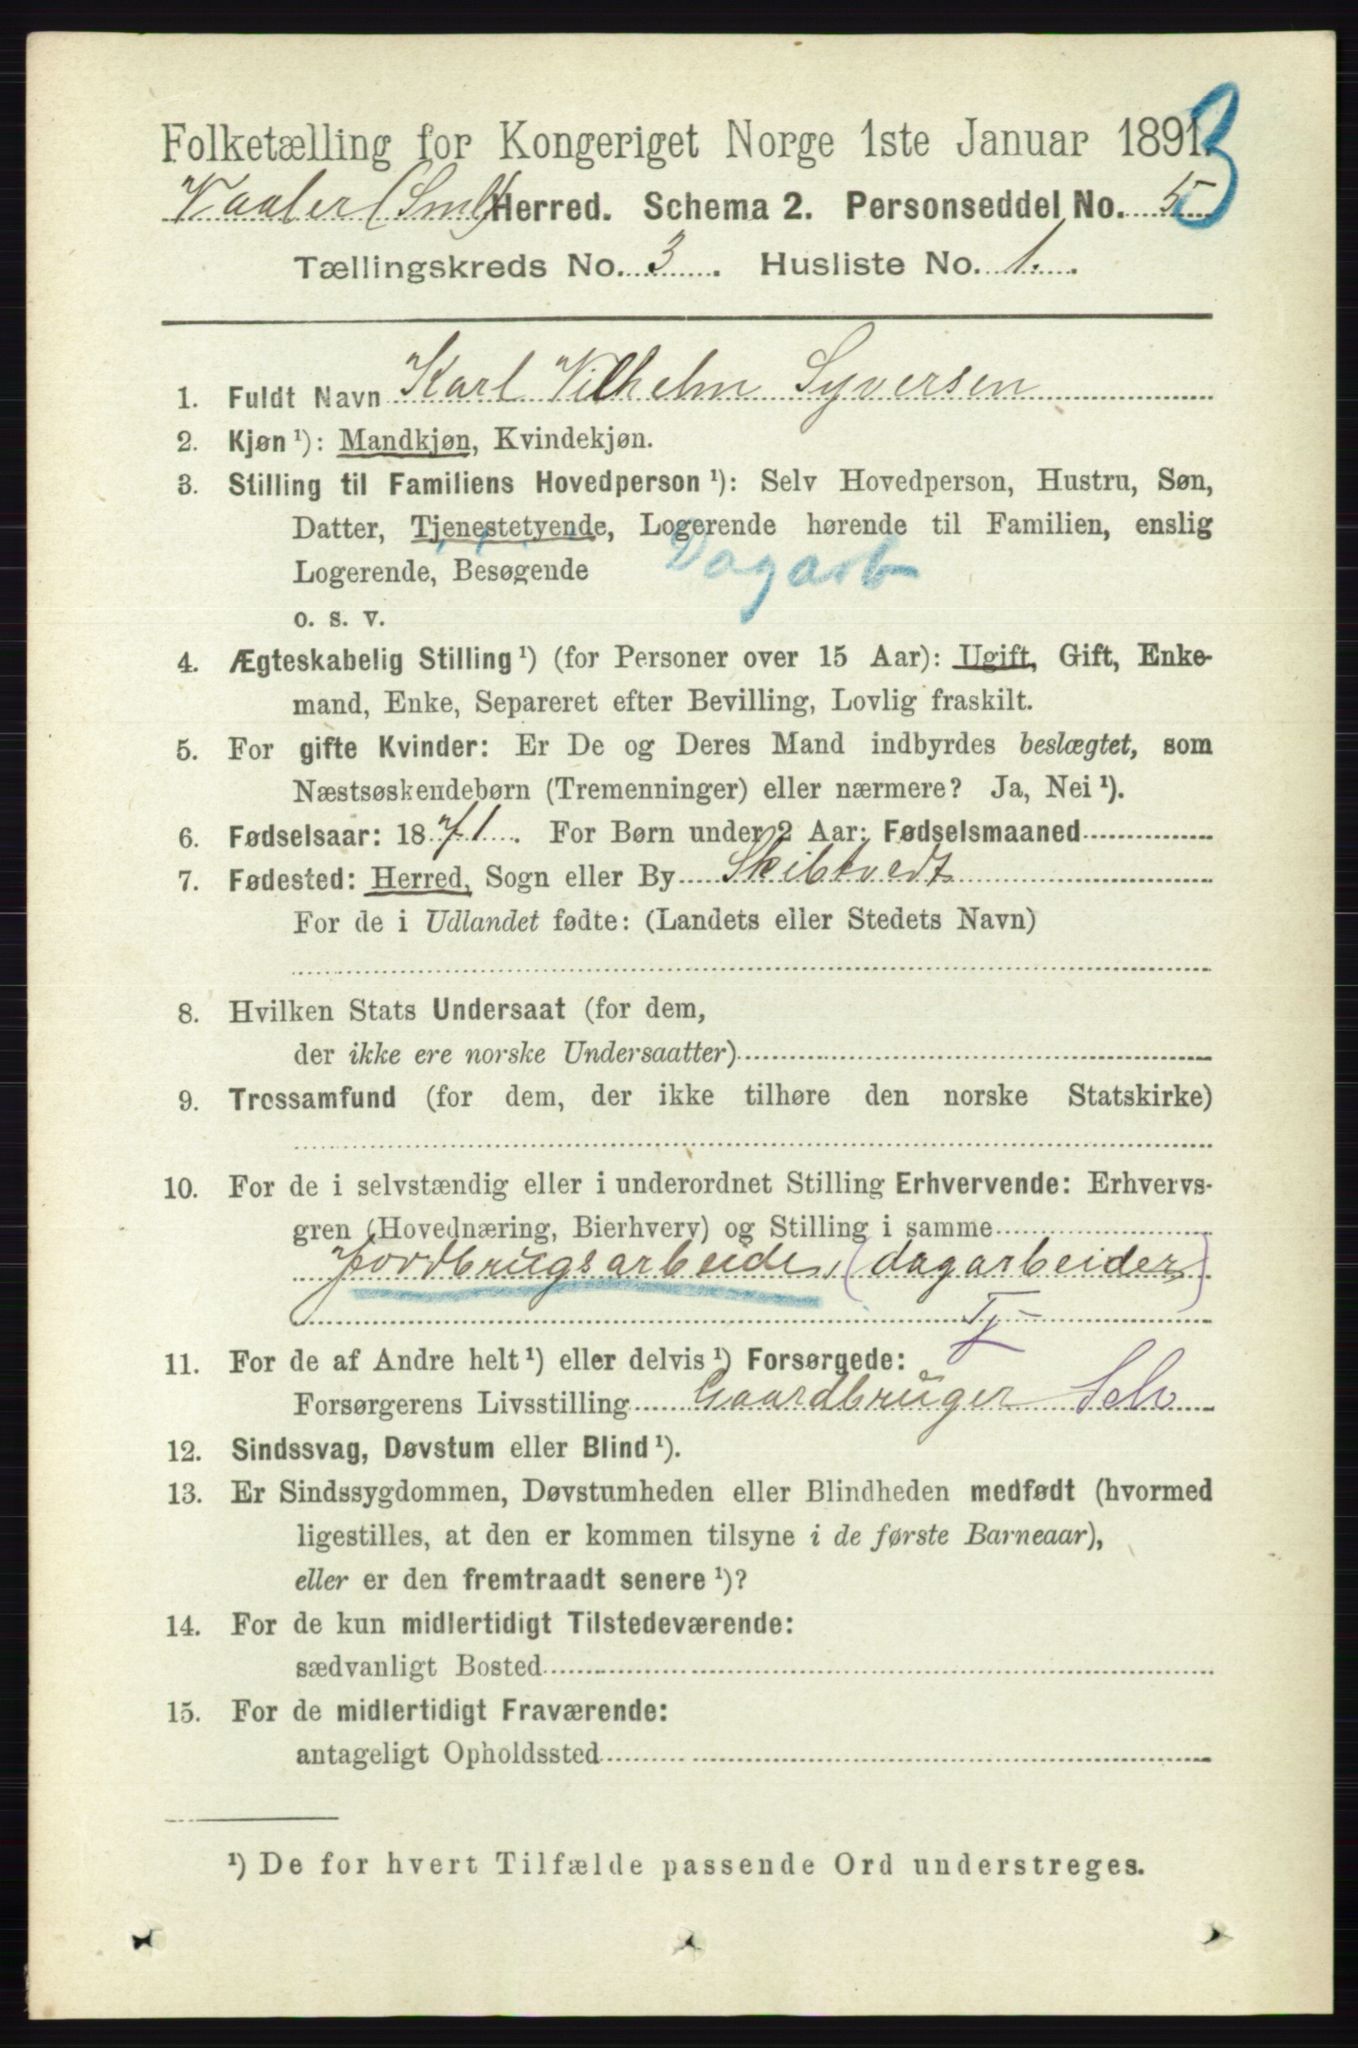 Folketælling for Kongeriget Norge 1ste Januar 1891. 3
Vaaler (Sml) Herred. Schema 2. Personseddel No. 5
Tællingskreds No. 3. Husliste No. 1.
1. Fuldt Navn Karl Vilhelm Syversen
2. Kjøn ¹): Mandkjøn, Kvindekjøn.
3. Stilling til Familiens Hovedperson ¹): Selv Hovedperson, Hustru, Søn,
Datter, Tjenestetyende, Logerende hørende til Familien, enslig
Logerende, Besøgende Dagarb
o. s. v.
4. Ægteskabelig Stilling ¹) (for Personer over 15 Aar): Ugift, Gift, Enke-
mand, Enke, Separeret efter Bevilling, Lovlig fraskilt.
5. For gifte Kvinder: Er De og Deres Mand indbyrdes beslægtet, som
Næstsøskendebørn (Tremenninger) eller nærmere? Ja, Nei ¹).
6. Fødselsaar: 1871. For Børn under 2 Aar: Fødselsmaaned
7. Fødested: Herred, Sogn eller By Skibtvedt
For de i Udlandet fødte: (Landets eller Stedets Navn)
8. Hvilken Stats Undersaat (for dem,
der ikke ere norske Undersaatter)
9. Trossamfund (for dem, der ikke tilhøre den norske Statskirke)
10. For de i selvstændig eller i underordnet Stilling Erhvervende: Erhvervs-
gren (Hovednæring, Bierhverv) og Stilling i samme
Jordbrugsarbeide, (dagarbeider)
Tj-
11. For de af Andre helt ¹) eller delvis ¹) Forsørgede:
Forsørgerens Livsstilling Gaardbruger Selv
12. Sindssvag, Døvstum eller Blind ¹).
13. Er Sindssygdommen, Døvstumheden eller Blindheden medfødt (hvormed
ligestilles, at den er kommen tilsyne i de første Barneaar),
eller er den fremtraadt senere ¹)?
14. For de kun midlertidigt Tilstedeværende:
sædvanligt Bosted
15. For de midlertidigt Fraværende:
antageligt Opholdssted
¹) De for hvert Tilfælde passende Ord understreges.